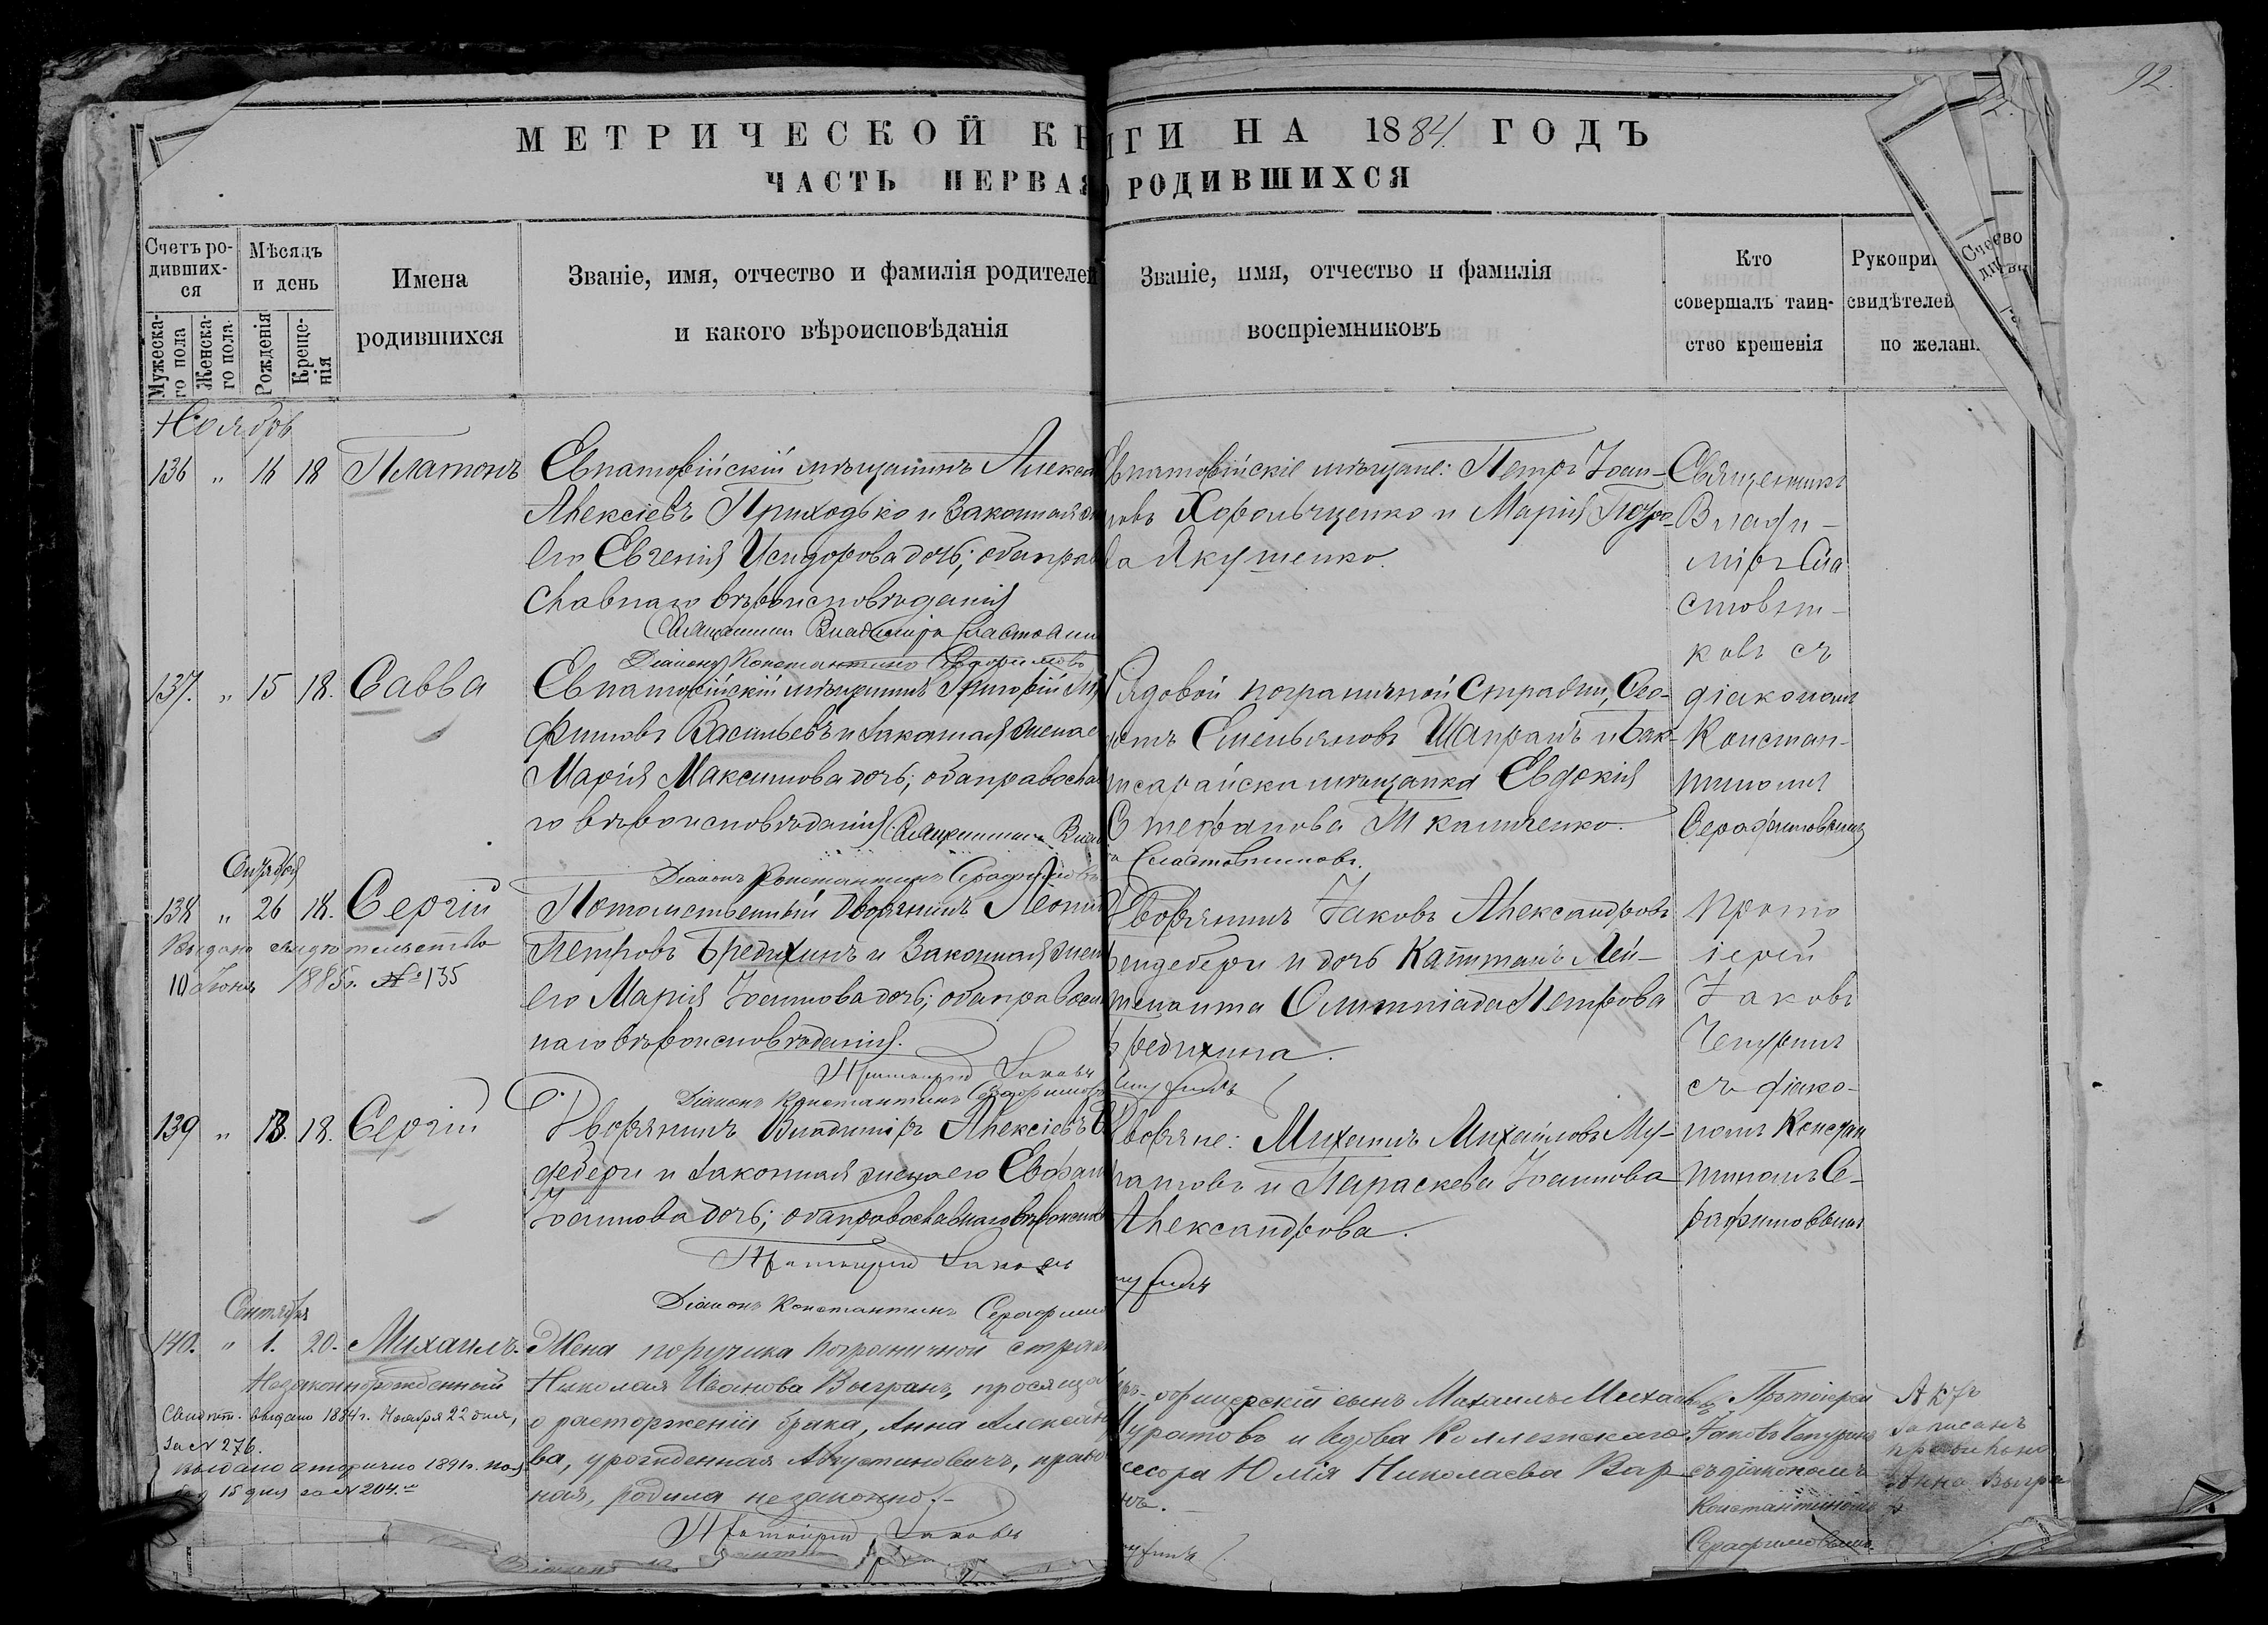 92.
МЕТРИЧЕСКОЙ КНИГИ НА 1884 ГОДЪ
ЧАСТЬ ПЕРВАЯ РОДИВШИХСЯ
Счетъ ро-
дивших-
ся
Мужеска-
го пола
Женска-
го пола
Мѣсяцъ
и день
Рожденія
Креще-
нія
Имена
родившихся
Званіе, имя, отчество и фамилія родителей
и какого вѣроисповѣданія
Званіе, имя, отчество и фамилія
воспріемниковъ
Кто
совершалъ таин-
ство крещенія
Рукопри
свидѣтелей
по желані
Ноябрь
136 " 16 18 Платонъ
Евпаторійскій мѣщанинъ Алекса
Алексіевъ Приходько и законная
его Евгенія Исидорова дочь; оба прав
славнаго вѣроисповѣданія
Священникъ Владиміръ Сластовни
Діаконъ Константинъ Серафимовъ
Евпаторійскіе мѣщане: Петръ Іоан-
новъ Хорольщенко и Марія Петро-
ва Якушенко.
Священникъ
Влади-
міръ Сла
стовни-
ковъ съ
діакономъ
Констан-
тиномъ
Серафимовымъ
137. " 15 18. Савва
Евпаторійскій мѣщанинъ Григорій
фимовъ Васильевъ и законная жена е
Марія Максимова дочь; оба правосла
го вѣроисповѣданія. Священникъ Вла
Діаконъ Константинъ Серафимовъ
Рядовой пограничной Стражи, Ѳео-
Емельяновъ Шапранъ и Бах-
чисарайска мѣщанка Евдокія
Стефанова Ткаличенко.
Сластовниковъ.
138 " 26 18. Сергій
Выдано свидѣтельство
10 Іюня 1885 г. № 135
Потомственный Дворянинъ Леони
Петровъ Бредихинъ и законная жен
его Марія Іоаннова дочь; оба правосла
наго вѣроисповѣданія.
Протоіерей Іаковъ
Діаконъ Константинъ Серафимовъ
Дворянинъ Іаковъ Александровъ
бендебери и дочь Капитанъ Лей-
тенанта Олимпіада Петрова
Бредихина.
Чепуринъ
Прото
іерей
Іаковъ
Чепуринъ
съ діако-
номъ Констан
тиномъ Се-
рафимовымъ
139 " 13. 18. Сергій
Дворянинъ Владиміръ Алексіевъ
дебери и законная жена его Евфа
Іоаннова дочь; оба православнаго вѣроиспов
Протоіерей Іаковъ
Діаконъ Константинъ Серафимо
Дворяне: Михаилъ Михайловъ Му-
ратовъ и Параскева Іоаннова
Александрова.
Сентября
140. " 1. 20. Михаилъ.
Незаконнорожденный
Свидѣт. выдано 1884 г. Ноября 22 дня,
за № 276.
Выдано вторично 1891 г.
15 дня за № 204.
Жена поручика пограничной страж
Николая Иванова Выгранъ, просяща
о расторженіи брака, Анна Алексан
ва, урожденная Августиновичъ, право
ная, родила незаконно.-
Протоіерей Іаковъ
Діаконъ
офицерскій сынъ Михаилъ Михайловъ
Муратовъ и вдова Коллежскаго
сесора Юлія Николаева Вар
Протоіерей
Іаковъ Чепуринъ
съ діакономъ
Константиномъ
Серафимовымъ.
Актъ
записанъ
правильно
Анна Выгра